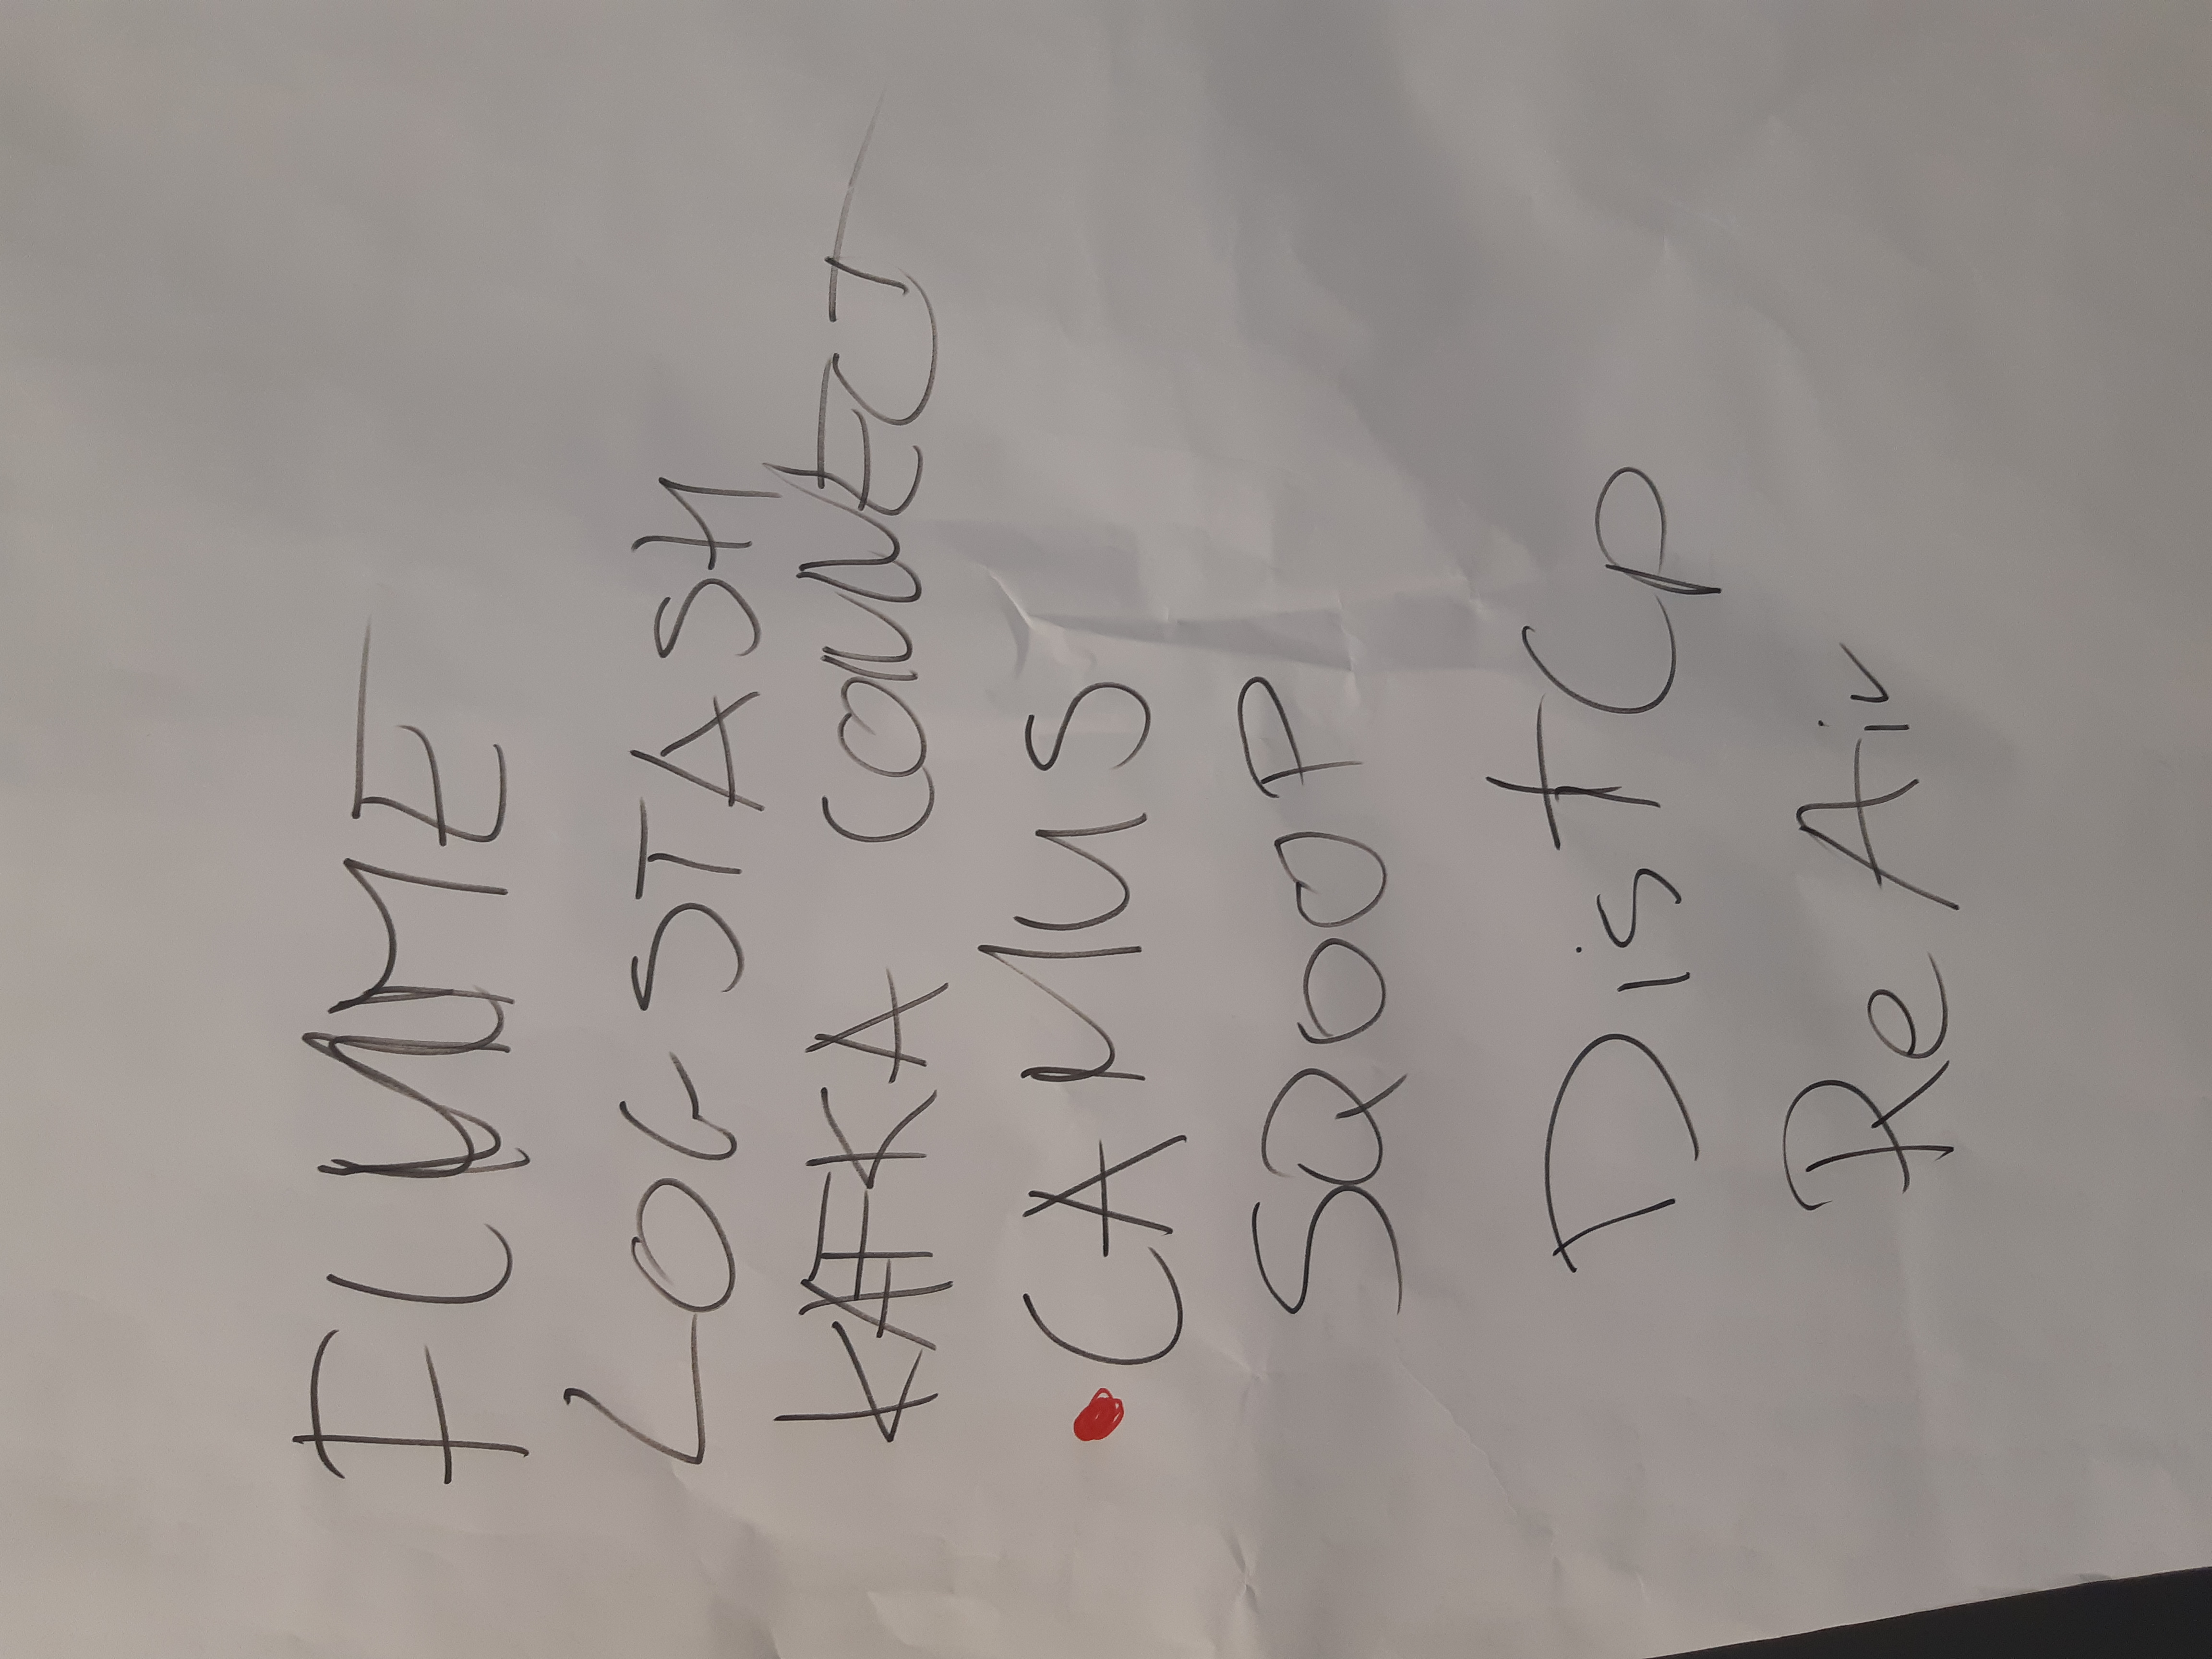 FLUME
LOGSTASH
KAFKA CONNECT
CAMUS
SQOOP
DistCp
ReAir